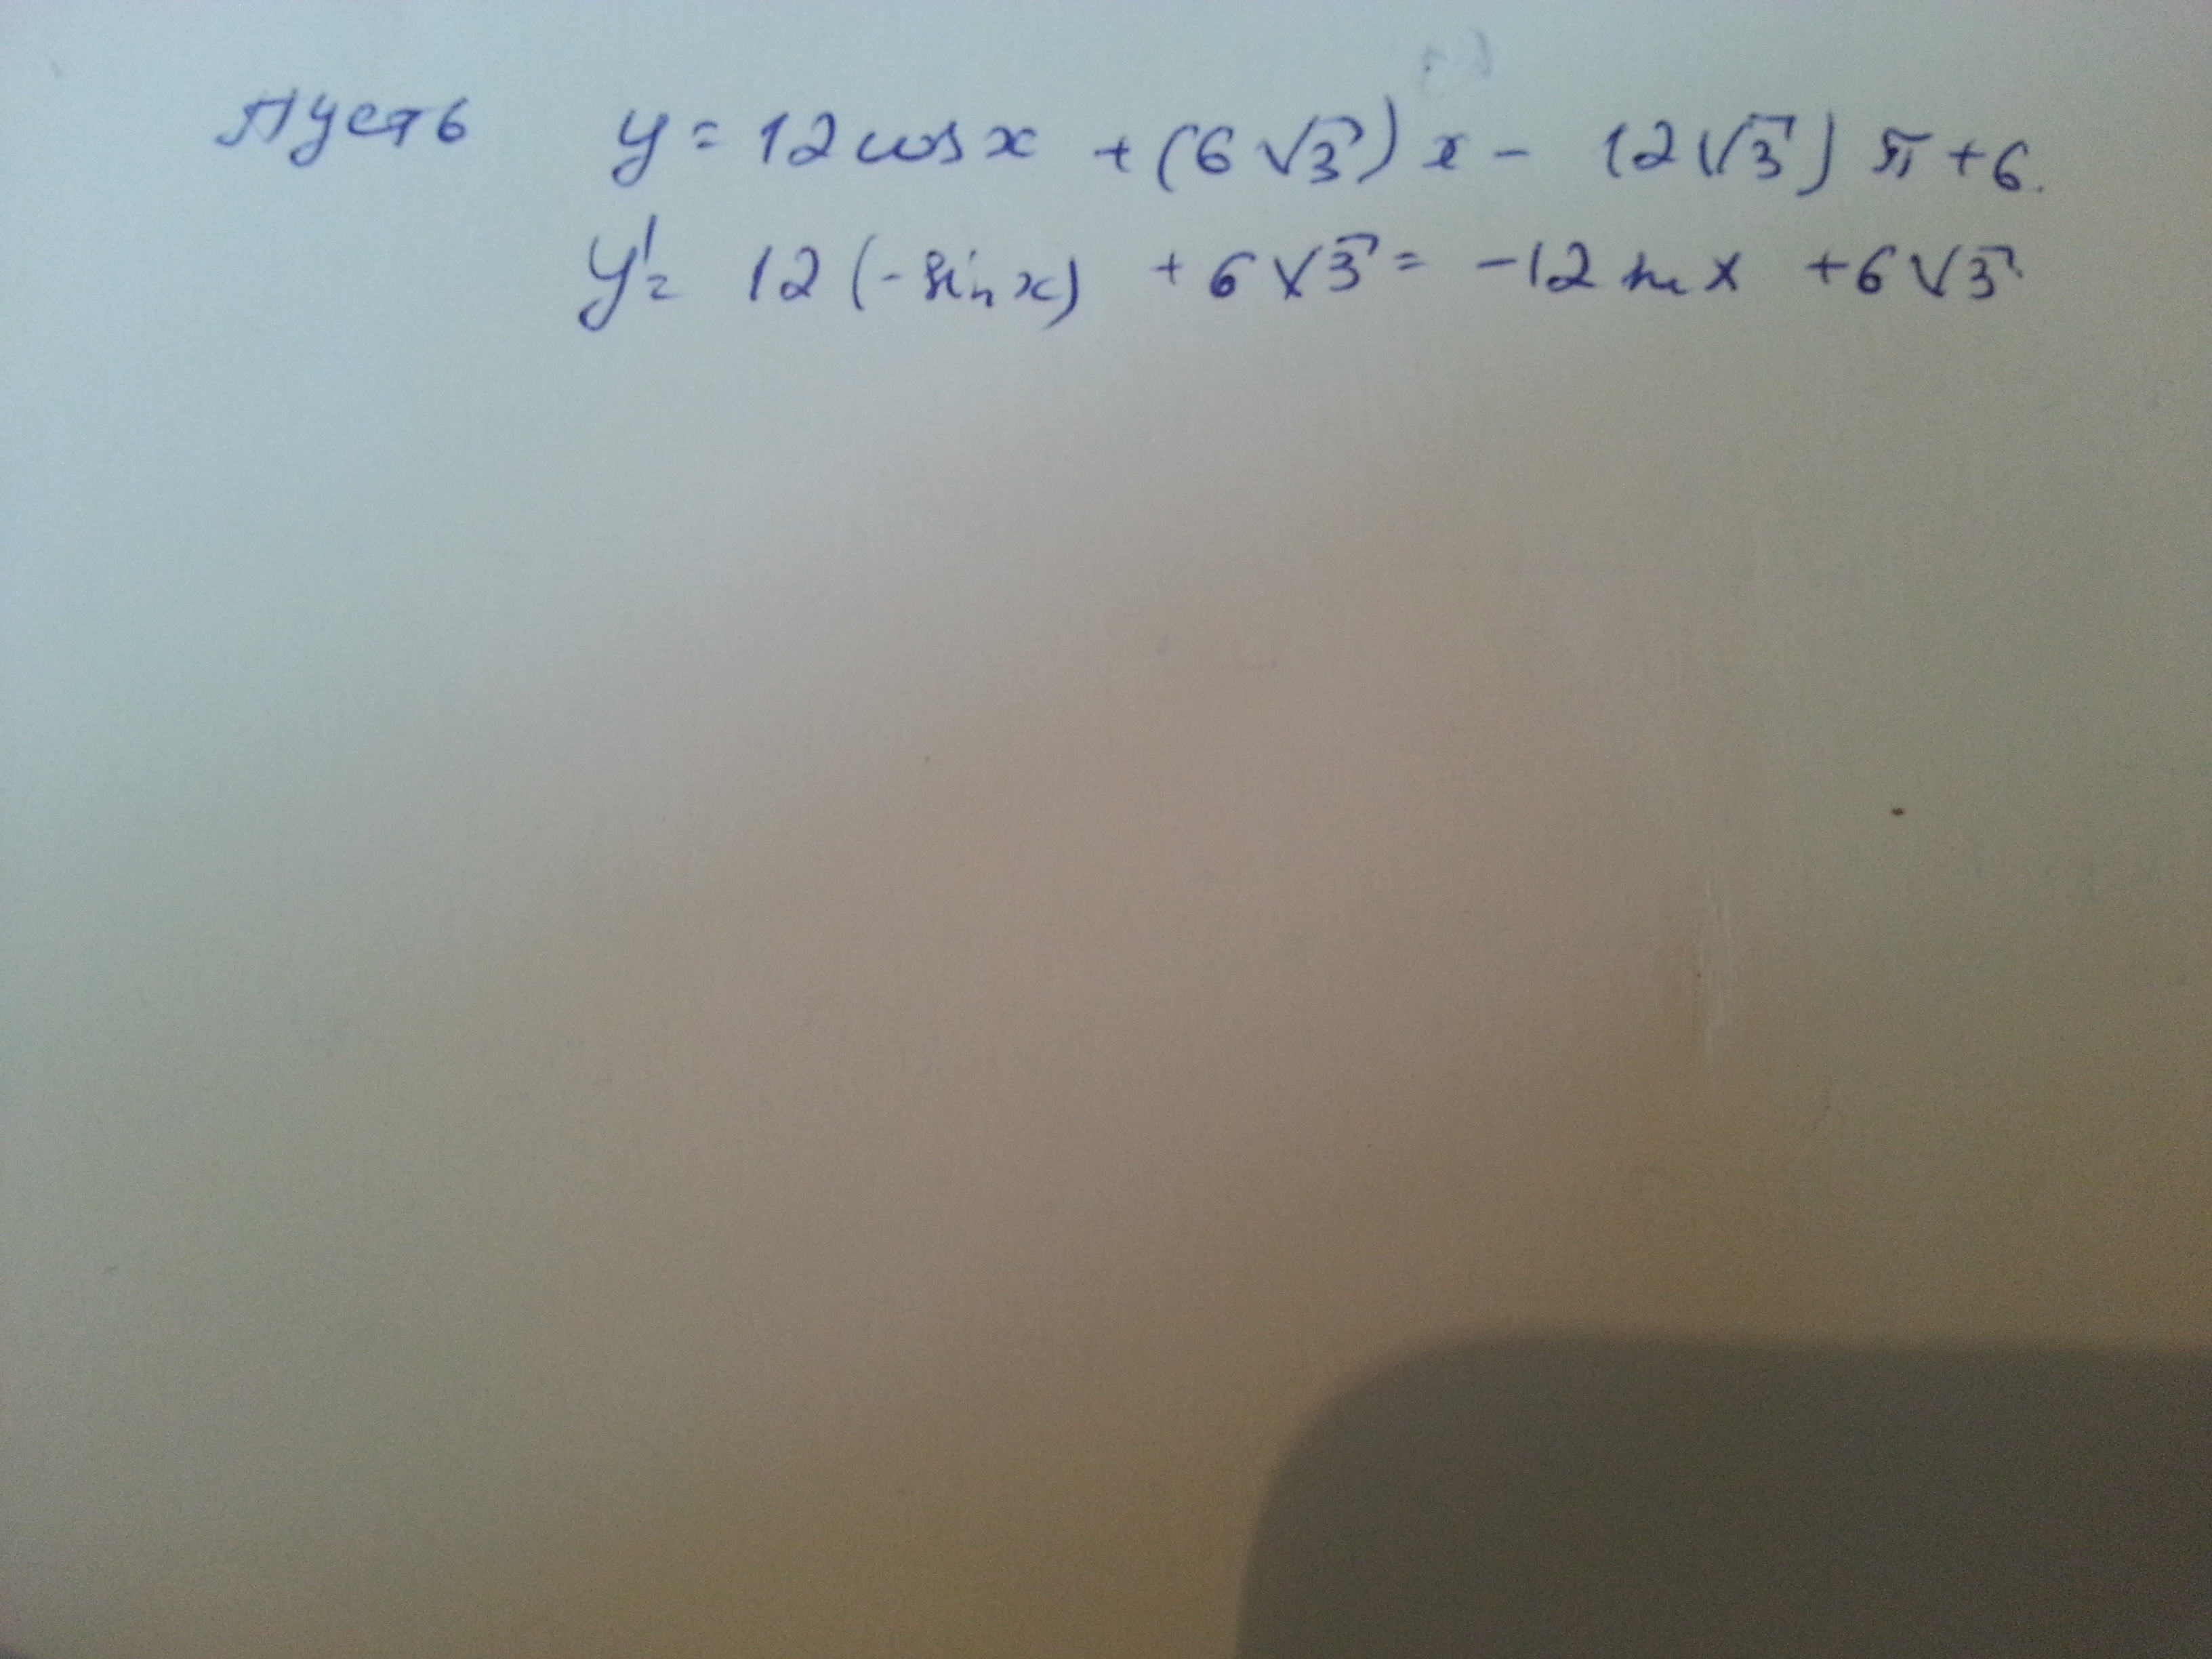 Пусть y = 12 cos x + (6 √3) x - 12 √3) π + 6.
y' = 12 (- sin x) + 6 √3 = -12 sin x + 6 √3